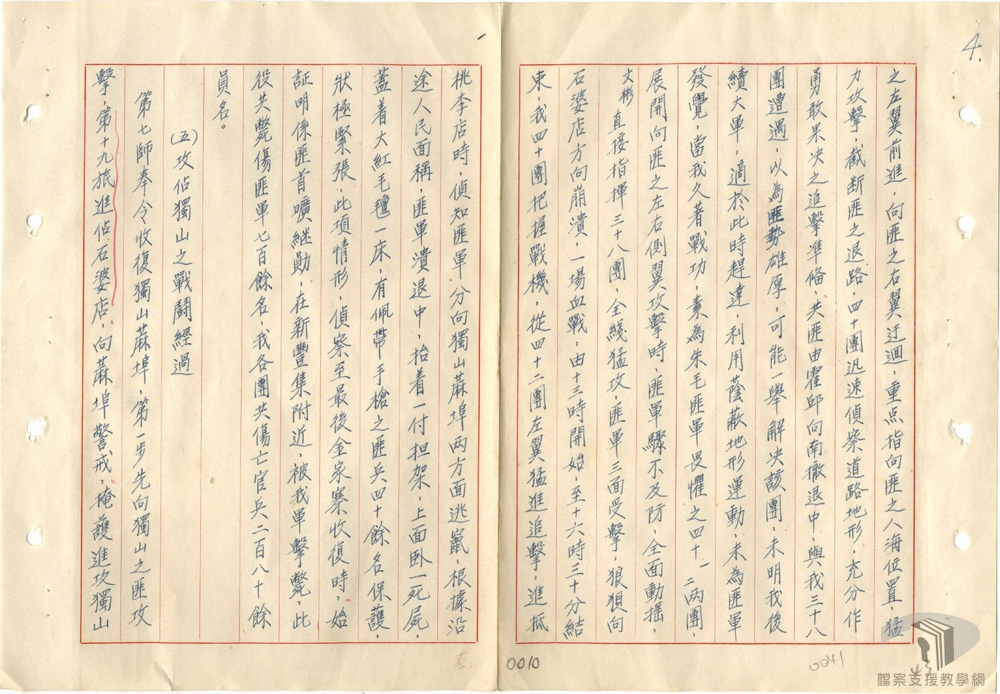 4.
之左翼前進，向匪之右翼迂迴，重点指向匪之人海位置，猛
力攻擊，截断匪之退路，四十團迅速偵察道路地形，充分作
勇敢果決之追擊準備，共匪由霍邱向南撤退中，與我三十八
團遭遇，以為匪勢雄厚，可能一舉解决該團，未明我後
續大軍，適於此時趕達，利用蔭蔽地形運動，未為匪軍
發覺，當我久著戰功，素為朱毛匪軍畏懼之四十一二兩團，
展開向匪之左右側翼攻擊時，匪軍驟不及防，全面動搖，
文彬直接指揮三十八團，全綫猛攻，匪軍三面受擊，狼狽向
石婆店方向崩潰，一場血戰，由十三時開始，至十六時三十分結
束，我四十團把握戰機，從四十二團左翼猛進追擊，進抵
桃李店時，偵知匪軍，分向獨山蔴埠两方面逃竄，根據沿
途人民面稱，匪軍潰退中，抬着一付担架，上面卧一死屍，
蓋着大紅毛氊一床，有佩帶手槍之匪兵四十餘名保護
狀極緊張，此項情形，偵察至最後金家寨收復時，始
証明係匪首曠継勛，在新豐集附近，被我軍擊斃，此
役共斃傷匪軍七百餘名，我各團共傷亡官兵二百八十餘
員名。
(五)攻佔獨山之戰鬪經過
第七師奉令收復獨山蔴埠，第一步先向獨山之匪攻
擊，第十九旅進佔石婆店，向蔴埠警戒，掩護進攻獨山
0010
0041
檔案支援教學網